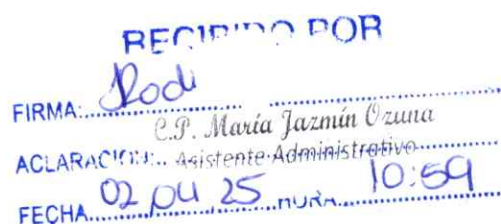 RECIBIDO POR
FIRMA:
C.P. María Jazmín Ozuna
ACLARACIÓN: Asistente Administrativo
FECHA 02 04 25 HORA 10:59